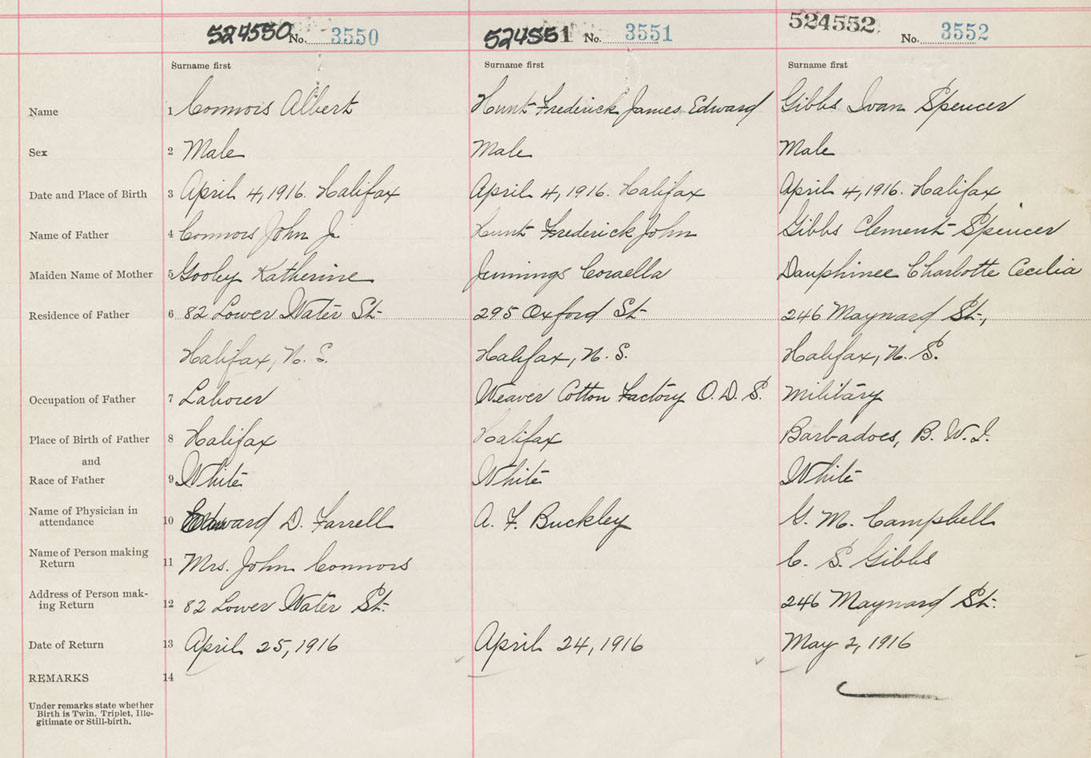 524550 No. 3550 524551 No. 3551 524552 No. 3552
Surname first Surname first Surname first
Name 1 Connors Albert Hunt Frederick James Edward Gibbs Ivan Spencer
Sex 2 Male Male Male
Date and Place of Birth 3 April 4, 1916. Halifax April 4, 1916. Halifax April 4, 1916. Halifax
Name of Father 4 Connors John J. Hunt Frederick John Gibbs Clement Spencer
Maiden Name of Mother 5 Gooley Katherine Jennings Coraella Dauphinee Charlotte Cecilia
Residence of Father 6 82 Lower Water St. 295 Oxford St. 246 Maynard St.,
Halifax, N. S. Halifax, N. S. Halifax, N. S.
Occupation of Father 7 Laborer Weaver Cotton Factory O. D. S. Military
Place of Birth of Father 8 Halifax Halifax Barbadoes, B. W. I.
and
Race of Father 9 White White White
Name of Physician in
attendance 10 Edward D. Farrell A. F. Buckley G. M. Campbell
Name of Person making
Return 11 Mrs. John Connors C. S. Gibbs
Address of Person mak-
ing Return 12 82 Lower Water St. 246 Maynard St.
Date of Return 13 April 25, 1916 April 24, 1916 May 2, 1916
REMARKS 14
Under remarks state whether
Birth is Twin, Triplet, Ille-
gitimate or Still-birth.